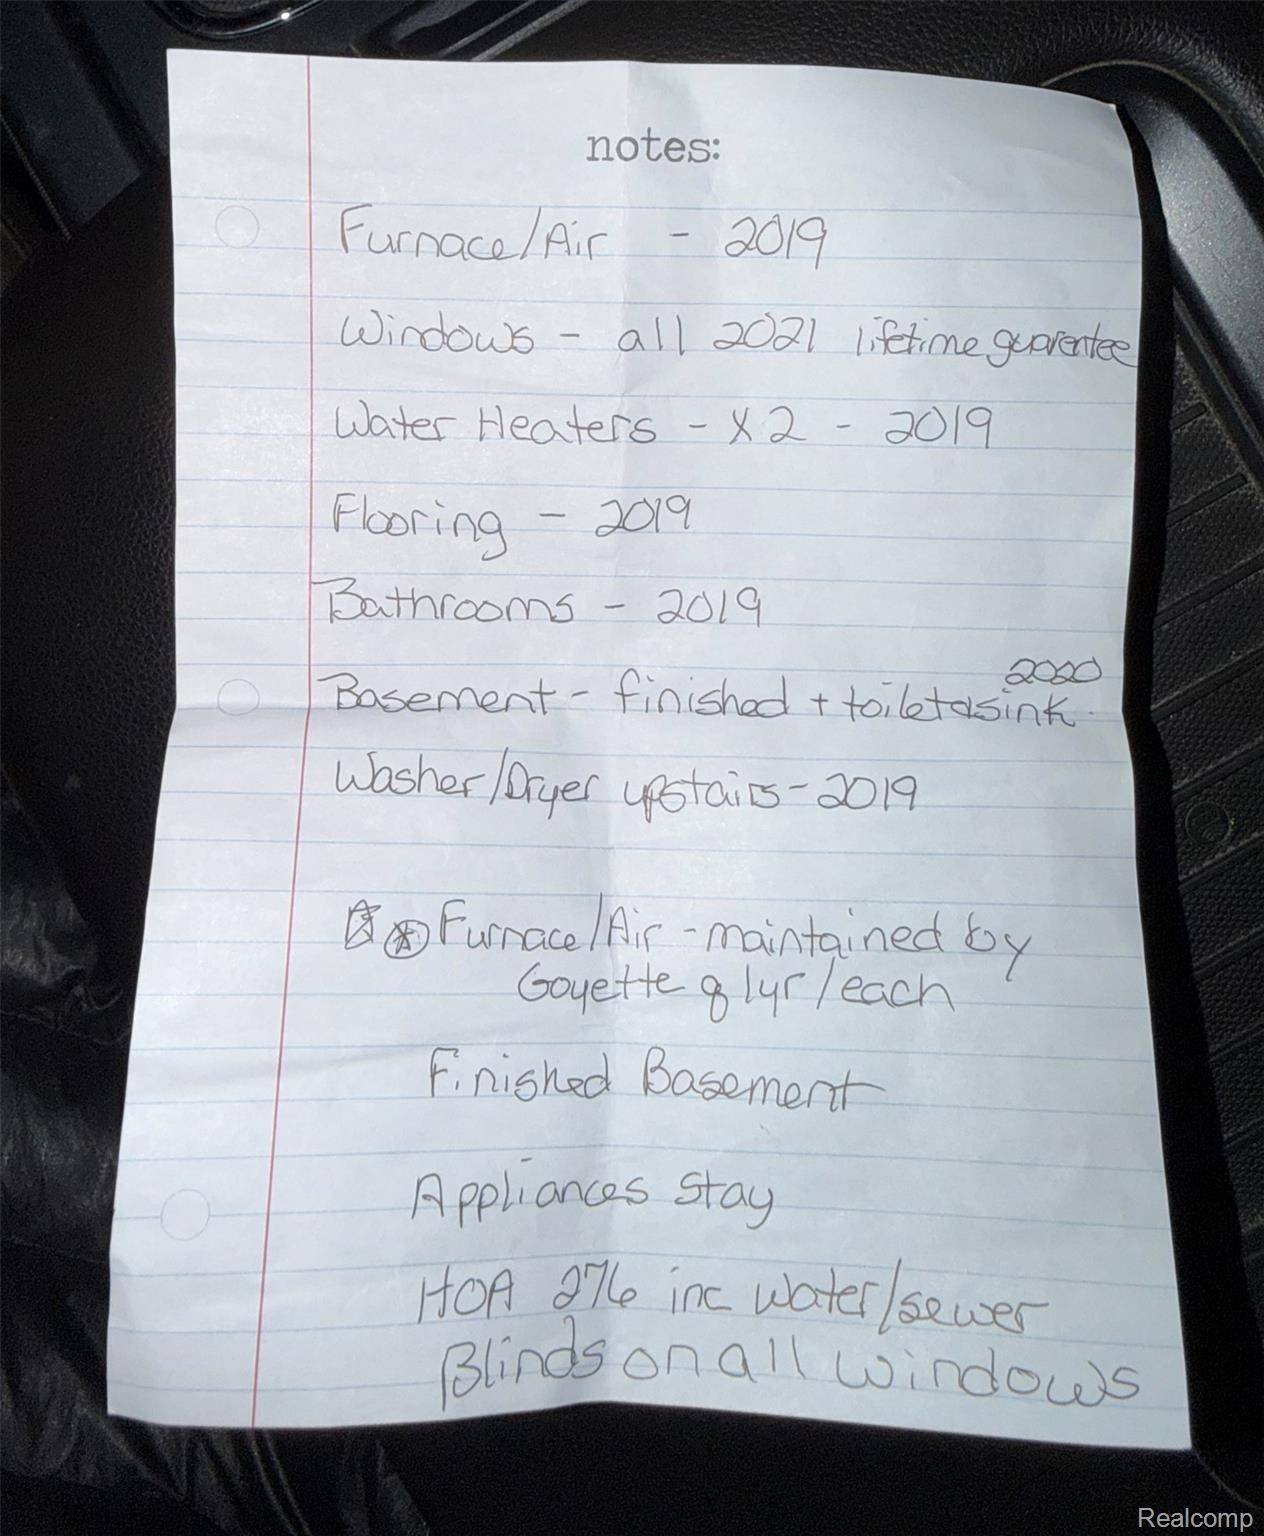 notes:
Furnace/Air - 2019
Windows - all 2021 lifetime guarentee
Water Heaters - x2 - 2019
Flooring - 2019
Bathrooms - 2019
2020
Basement - finished + toilet sink
Washer/Dryer upstairs - 2019
Furnace/Air - maintained by
Goyette q 1yr/each
Finished Basement
Appliances Stay
HOA 276 inc water/sewer
Blinds on all windows
Realcomp